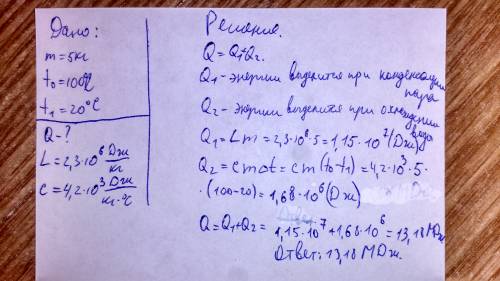 Дано:
m=5кг
t₀=100℃
t₁=20°C
Q-?
L=2,3·10⁶ Дж/кг
c=4,2·10³ Дж/кг·°С
Решение.
Q=Q₁+Q₂.
Q₁-энергии выделится при конденсации
пара
Q₂-энергии выделится при охлаждении
воды
Q₁=Lm=2,3·10⁶·5=1,15·10⁷(Дж)
Q₂=cmΔt=cm(t₀-t₁)=4,2·10³·5·
·(100-20)=1,68·10⁶(Дж)
Q=Q₁+Q₂=1,15·10⁷+1,68·10⁶=13,18МДж
Ответ:13,18 МДж.